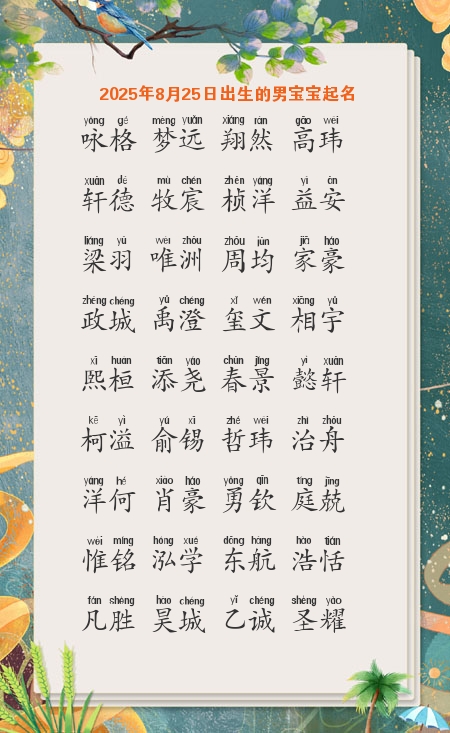 2025年8月25日出生的男宝宝起名
yǒng gé mèng yuǎn xiáng rán gāo wěi
咏格 梦远 翔然 高玮
xuān dé mù chén zhēn yáng yì ān
轩德 牧宸 桢洋 益安
liáng yǔ wéi zhōu zhōu jūn jiā háo
梁羽 唯洲 周均 家豪
zhèng chéng yǔ chéng xǐ wén xiāng yǔ
政城 禹澄 玺文 相宇
xī huán tiān yáo chūn jǐng yì xuān
熙桓 添尧 春景 懿轩
kē yì yú xī zhé wěi zhì zhōu
柯溢 俞锡 哲玮 治舟
yáng hé xiào háo yǒng qīn tíng jīng
洋何 肖豪 勇钦 庭兢
wéi míng hóng xué dōng háng hào tián
惟铭 泓学 东航 浩恬
fán shèng hào chéng yǐ chéng shèng yào
凡胜 昊城 乙诚 圣耀